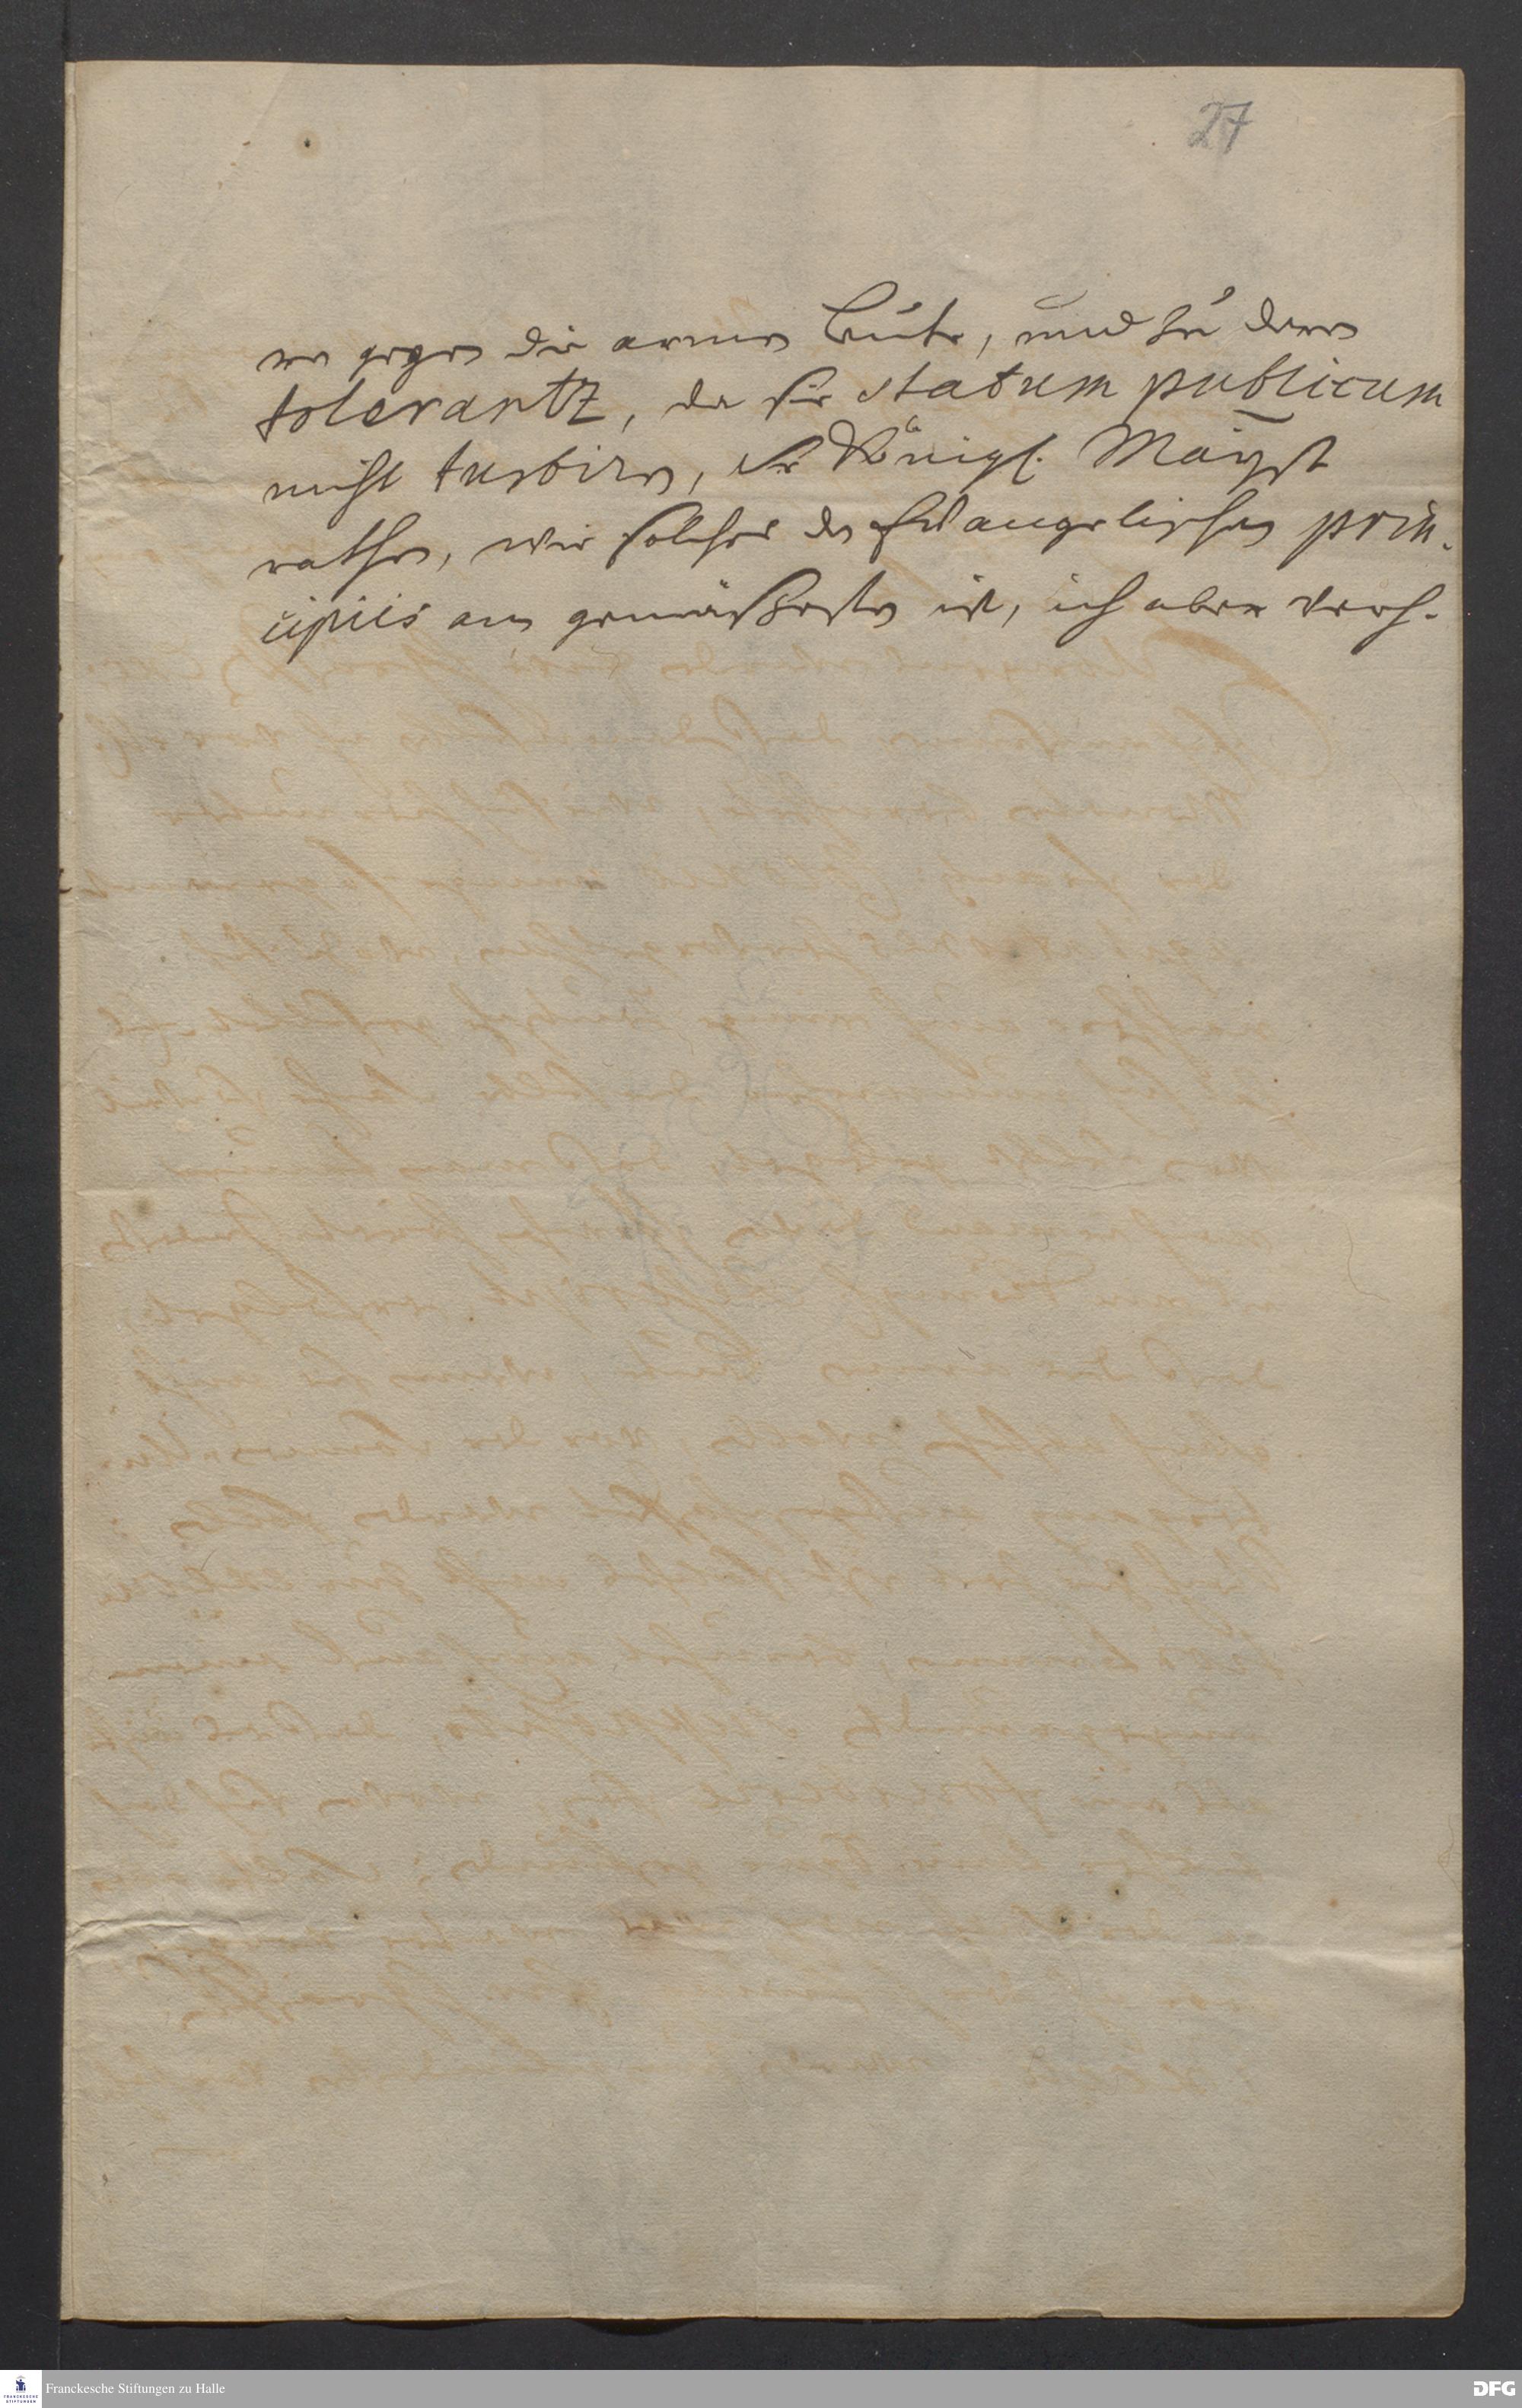 27
ne gegen die armen Leute, und zu deren
tolerantz, da sie statum publicum
nicht turbiren, Sr Königl. Mayst
rathen, wie solches den Evangelischen prin-
cipiis am gemäßesten ist, ich aber
Franckesche Stiftungen zu Halle
DFG